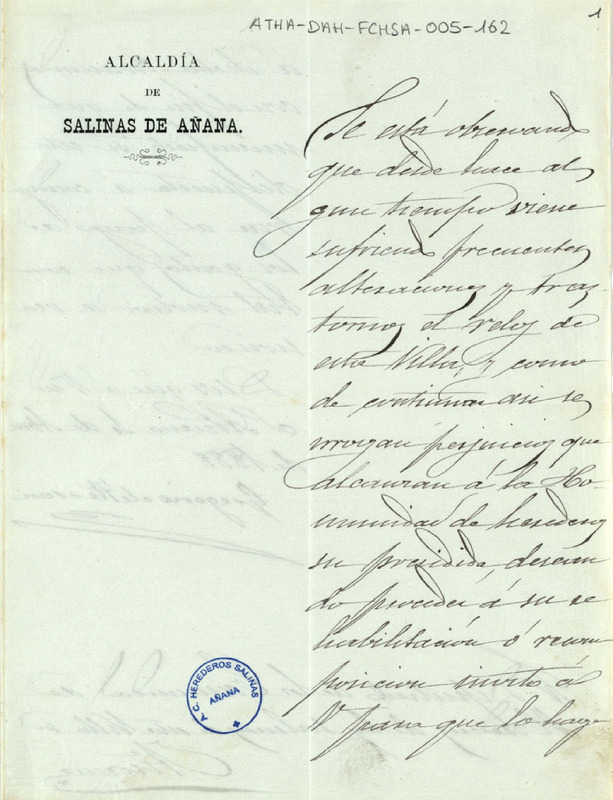 ATHA-DAH-FCHSA-005-162
1
ALCALDÍA
DE
SALINAS DE AÑANA.
Se está observando
que desde hace al
gun tiempo viene
sufriendo frecuentes
alteraciones y tras
tornos el reloj de
esta Villa, y como
de continuar asi se
irrogan perjuicios que
alcanzan á la Co-
munidad de herederos
su presidida, desean
do proceder á su re
habilitación ó recom
posicion invito á
V para que lo haga
A C. HEREDEROS SALINAS
AÑANA